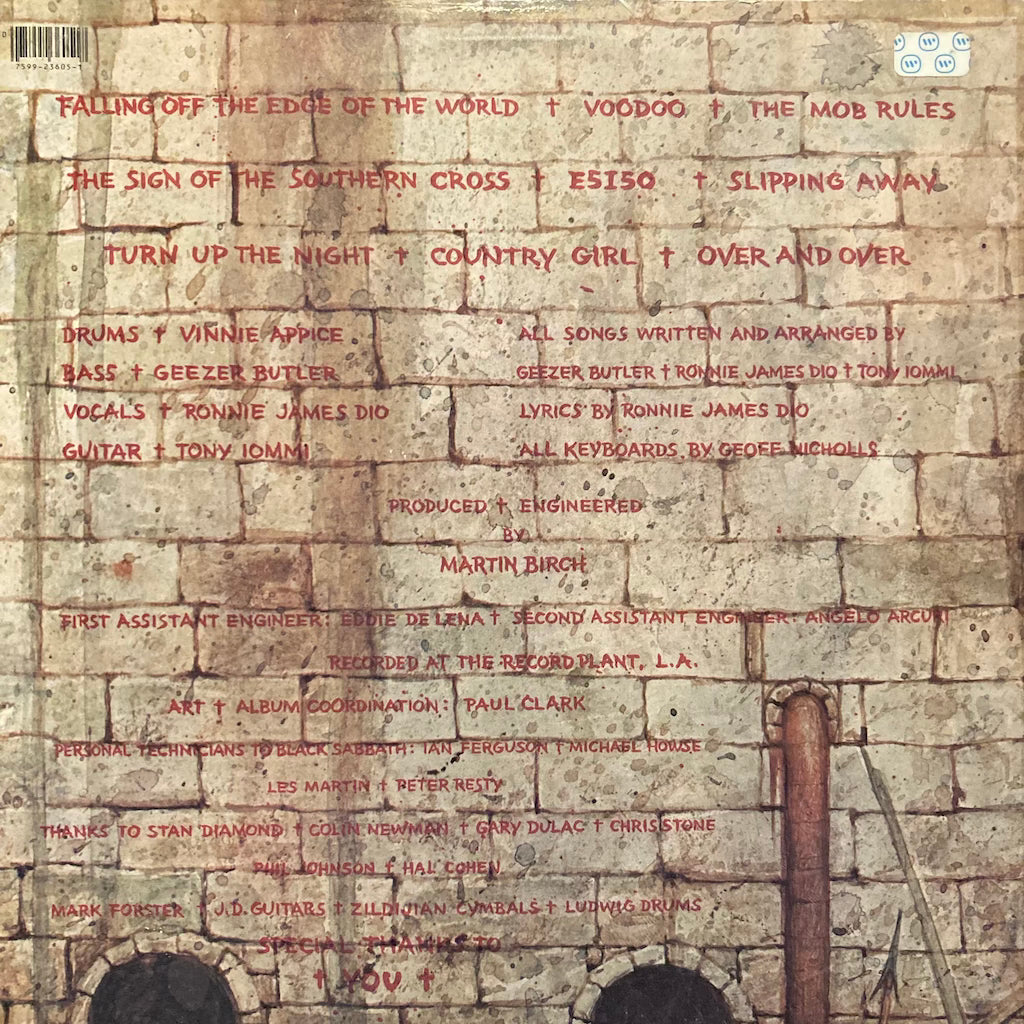 7599-23605-1
FALLING OFF THE EDGE OF THE WORLD † VOODOO † THE MOB RULES
THE SIGN OF THE SOUTHERN CROSS † E5150 † SLIPPING AWAY
TURN UP THE NIGHT † COUNTRY GIRL † OVER AND OVER
DRUMS † VINNIE APPICE
BASS † GEEZER BUTLER
VOCALS † RONNIE JAMES DIO
GUITAR † TONY IOMMI
ALL SONGS WRITTEN AND ARRANGED BY
GEEZER BUTLER † RONNIE JAMES DIO † TONY IOMMI
LYRICS BY RONNIE JAMES DIO
ALL KEYBOARDS BY GEOFF NICHOLLS
PRODUCED † ENGINEERED
BY
MARTIN BIRCH
FIRST ASSISTANT ENGINEER: EDDIE DE LENA † SECOND ASSISTANT ENGINEER: ANGELO ARCURI
RECORDED AT THE RECORD PLANT, L.A.
ART † ALBUM COORDINATION: PAUL CLARK
PERSONAL TECHNICIANS TO BLACK SABBATH: IAN FERGUSON † MICHAEL HOWSE
LES MARTIN † PETER RESTY
THANKS TO STAN DIAMOND † COLIN NEWMAN † GARY DULAC † CHRIS STONE
PHIL JOHNSON † HAL COHEN
MARK FORSTER † J.D. GUITARS † ZILDIJIAN CYMBALS † LUDWIG DRUMS
SPECIAL THANKS TO
† YOU †